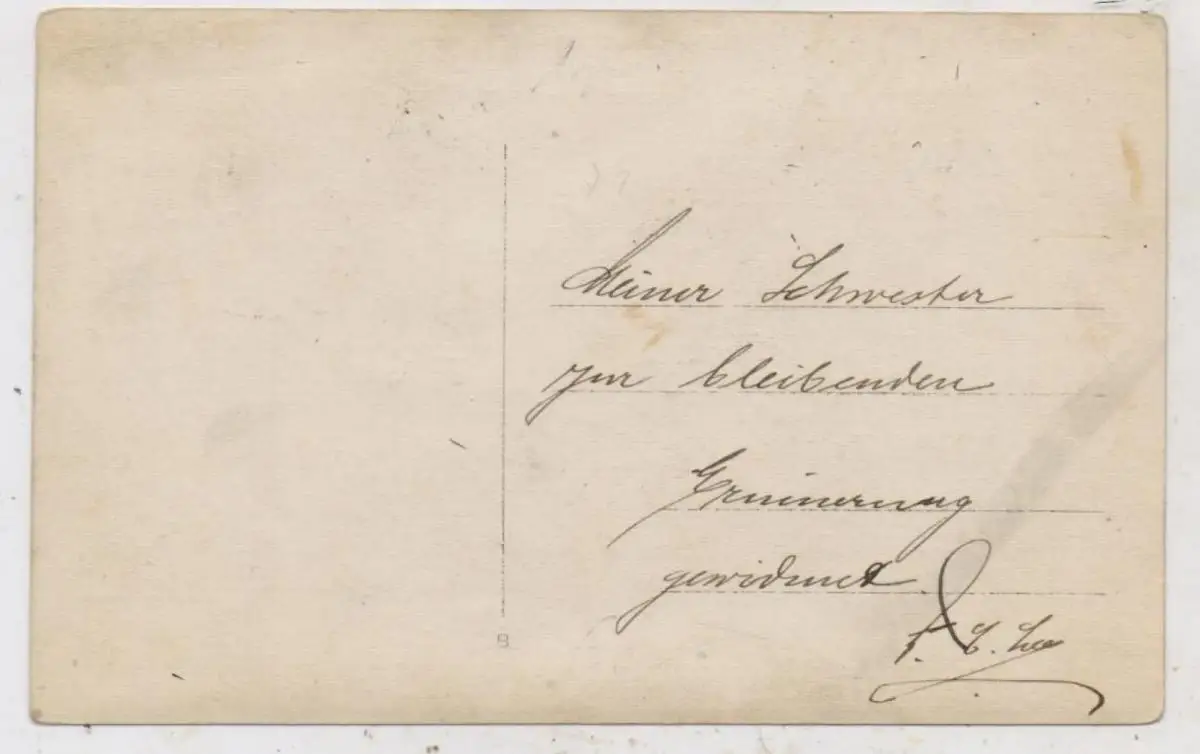 Meiner Schwester
zur bleibenden
Erinnerung
gewidmet
B